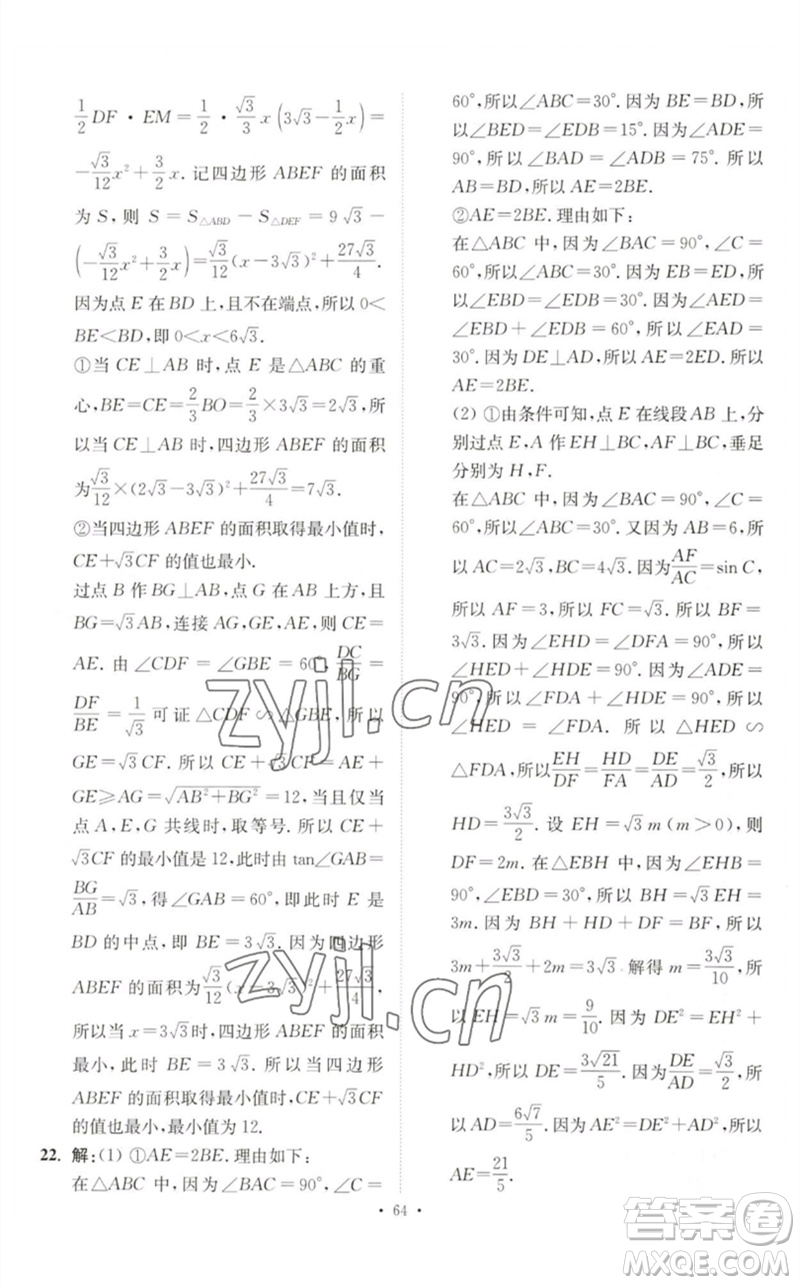 ½DF・EM=½・(√3/3)x(3√3-½x)=
-(√3/12)x²+(3/2)x. 记四边形 ABEF 的面积
为 S, 则 S=S△ABD-S△DEF=9√3-
(-(√3/12)x²+(3/2)x)=(√3/12)(x-3√3)²+27√3/4.
因为点 E 在 BD 上,且不在端点,所以 0<
BE<BD,即 0<x<6√3.
①当 CE⊥AB 时,点 E 是△ABC 的重
心,BE=CE=(2/3)BO=(2/3)×3√3=2√3,所
以当 CE⊥AB 时,四边形 ABEF 的面积
为(√3/12)×(2√3-3√3)²+27√3/4=7√3.
②当四边形 ABEF 的面积取得最小值时,
CE+√3CF 的值也最小.
过点 B 作 BG⊥AB,点 G 在 AB 上方,且
BG=√3AB,连接 AG,GE,AE,则 CE=
AE. 由∠CDF=∠GBE=60°, DC/BG=
DF/BE=1/√3 可证△CDF∽△GBE,所以
GE=√3CF. 所以 CE+√3CF=AE+
GE≥AG=√(AB²+BG²)=12,当且仅当
点 A,E,G 共线时,取等号. 所以 CE+
√3CF 的最小值是 12,此时由 tan∠GAB=
BG/AB=√3,得∠GAB=60°,即此时 E 是
BD 的中点,即 BE=3√3. 因为四边形
ABEF 的面积为(√3/12)(x-3√3)²+27√3/4,
所以当 x=3√3 时,四边形 ABEF 的面积
最小,此时 BE=3√3. 所以当四边形
ABEF 的面积取得最小值时,CE+√3CF
的值也最小,最小值为 12.
22. 解:(1) ①AE=2BE.理由如下:
在△ABC 中,因为∠BAC=90°,∠C=
60°,所以∠ABC=30°. 因为 BE=BD,所
以∠BED=∠EDB=15°. 因为∠ADE=
90°,所以∠BAD=∠ADB=75°. 所以
AB=BD,所以 AE=2BE.
②AE=2BE. 理由如下:
在△ABC 中,因为∠BAC=90°,∠C=
60°,所以∠ABC=30°. 因为 EB=ED,所
以∠EBD=∠EDB=30°. 所以∠AED=
∠EBD+∠EDB=60°,所以∠EAD=
30°. 因为 DE⊥AD,所以 AE=2ED. 所以
AE=2BE.
(2) ①由条件可知,点 E 在线段 AB 上,分
别过点 E,A 作 EH⊥BC,AF⊥BC,垂足
分别为 H,F.
在△ABC 中,因为∠BAC=90°,∠C=
60°,所以∠ABC=30°. 又因为 AB=6,所
以 AC=2√3,BC=4√3. 因为AF/AC=sin C,
所以 AF=3,所以 FC=√3,所以 BF=
3√3. 因为∠EHD=∠DFA=90°,所以
∠HED+∠HDE=90°. 因为∠ADE=
90°,所以∠FDA+∠HDE=90°,所以
∠HED=∠FDA. 所以△HED∽
△FDA,所以EH/DF=HD/FA=DE/AD=√3/2,所以
HD=3√3/2. 设 EH=√3m(m>0),则
DF=2m. 在△EBH 中,因为∠EHB=
90°,∠EBD=30°,所以 BH=√3EH=
3m. 因为 BH+HD+DF=BF,所以
3m+3√3/2+2m=3√3. 解得 m=3√3/10,所
以 EH=√3m=9/10. 因为 DE²=EH²+
HD²,所以 DE=3√21/5. 因为DE/AD=√3/2,所
以 AD=6√7/5. 因为 AE²=DE²+AD²,所以
AE=21/5.
・64・
zyjl.cn
zyjl.cn
答案圈
MXQE.COM